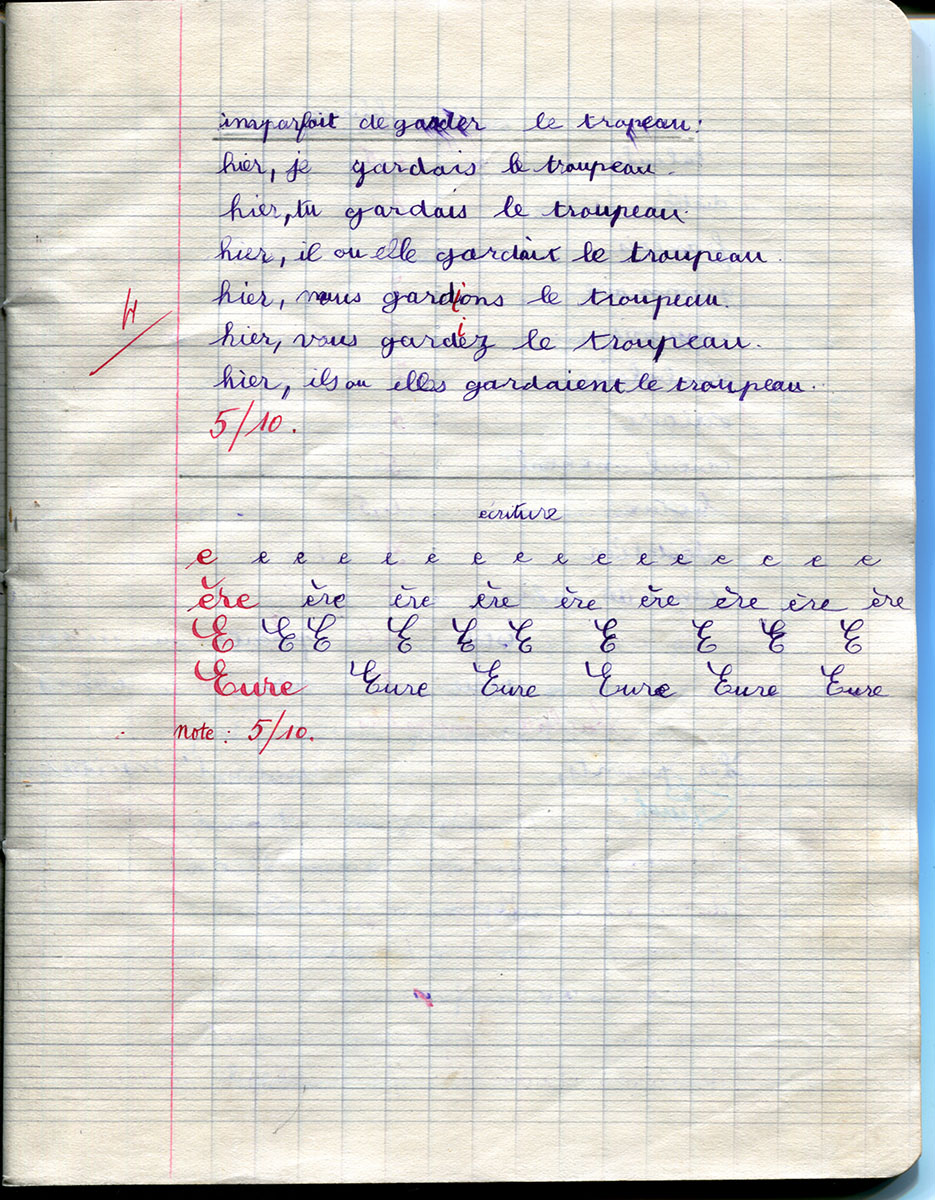 imparfait de garder le trapeau :
hier, je gardais le troupeau.
hier, tu gardais le troupeau.
hier, il ou elle gardait le troupeau.
hier, nous gardions le troupeau.
i
hier, vous gardez le troupeau.
hier, ils ou elles gardaient le troupeau.
5/10.
écriture
e e e e e e e e e e e e e e e e
ère ère ère ère ère ère ère ère ère
E E E E E E E E E E
Eure Eure Eure Eure Eure Eure
note : 5/10.